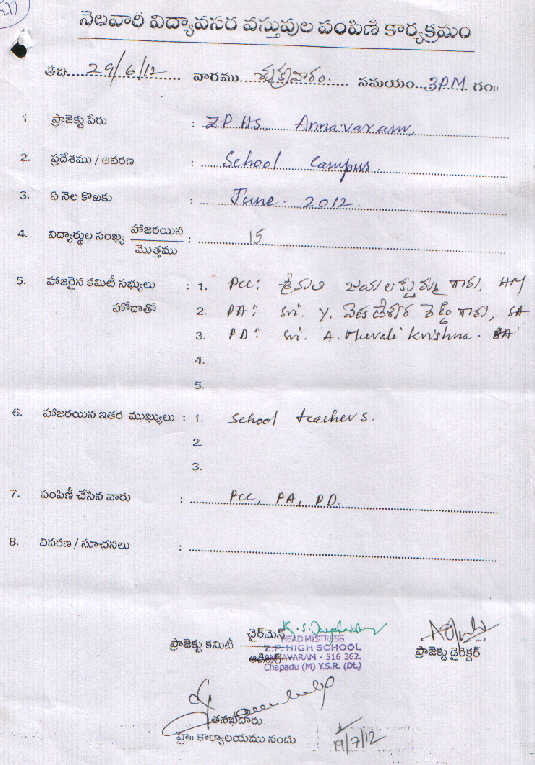 నెలవారీ విద్యావసర వస్తువుల పంపిణీ కార్యక్రమం
తేది...29/6/12... వారము శుక్రవారం... సమయం...3P.M. గం॥
1. ప్రాజెక్టు పేరు : Z.P.H.S. Annavaram.
2. ప్రదేశము / ఆవరణ : School Campus.
3. ఏ నెల కొఱకు : June - 2012
4. విద్యార్థుల సంఖ్య హాజరయిన / మొత్తము : 15
5. హాజరైన కమిటీ సభ్యులు : 1. PCC: శ్రీమతి జయలక్ష్మమ్మ గారు, HM
హోదాతో 2. PA: Sri. Y. గారు, SA
3. PD: Sri. A. Murali Krishna. SA
4.
5.
6. హాజరయిన ఇతర ముఖ్యులు : 1. School teachers.
2.
3.
7. పంపిణీ చేసిన వారు : PCC, PA, P.D.
8. వివరణ / సూచనలు :
ప్రాజెక్టు కమిటీ ఛైర్మెన్
HEAD MISTRESS
Z.P. HIGH SCHOOL
ప్రాజెక్టు డైరెక్టర్
AVARAN - 516 362.
Chapadu (M) Y.S.R. (Dt.)
తనిఖీదారు
ప్రా॥ కార్యాలయము నందు 19/7/12